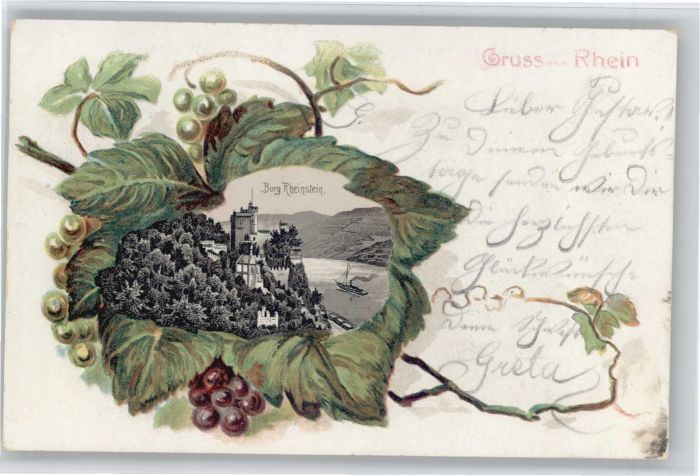 Gruss vom Rhein
Burg Rheinstein.
Lieber Gustav!
Zu Deinem Geburts-
tage senden wir Dir
die herzlichsten
Glückwünsche
Deine
Greta